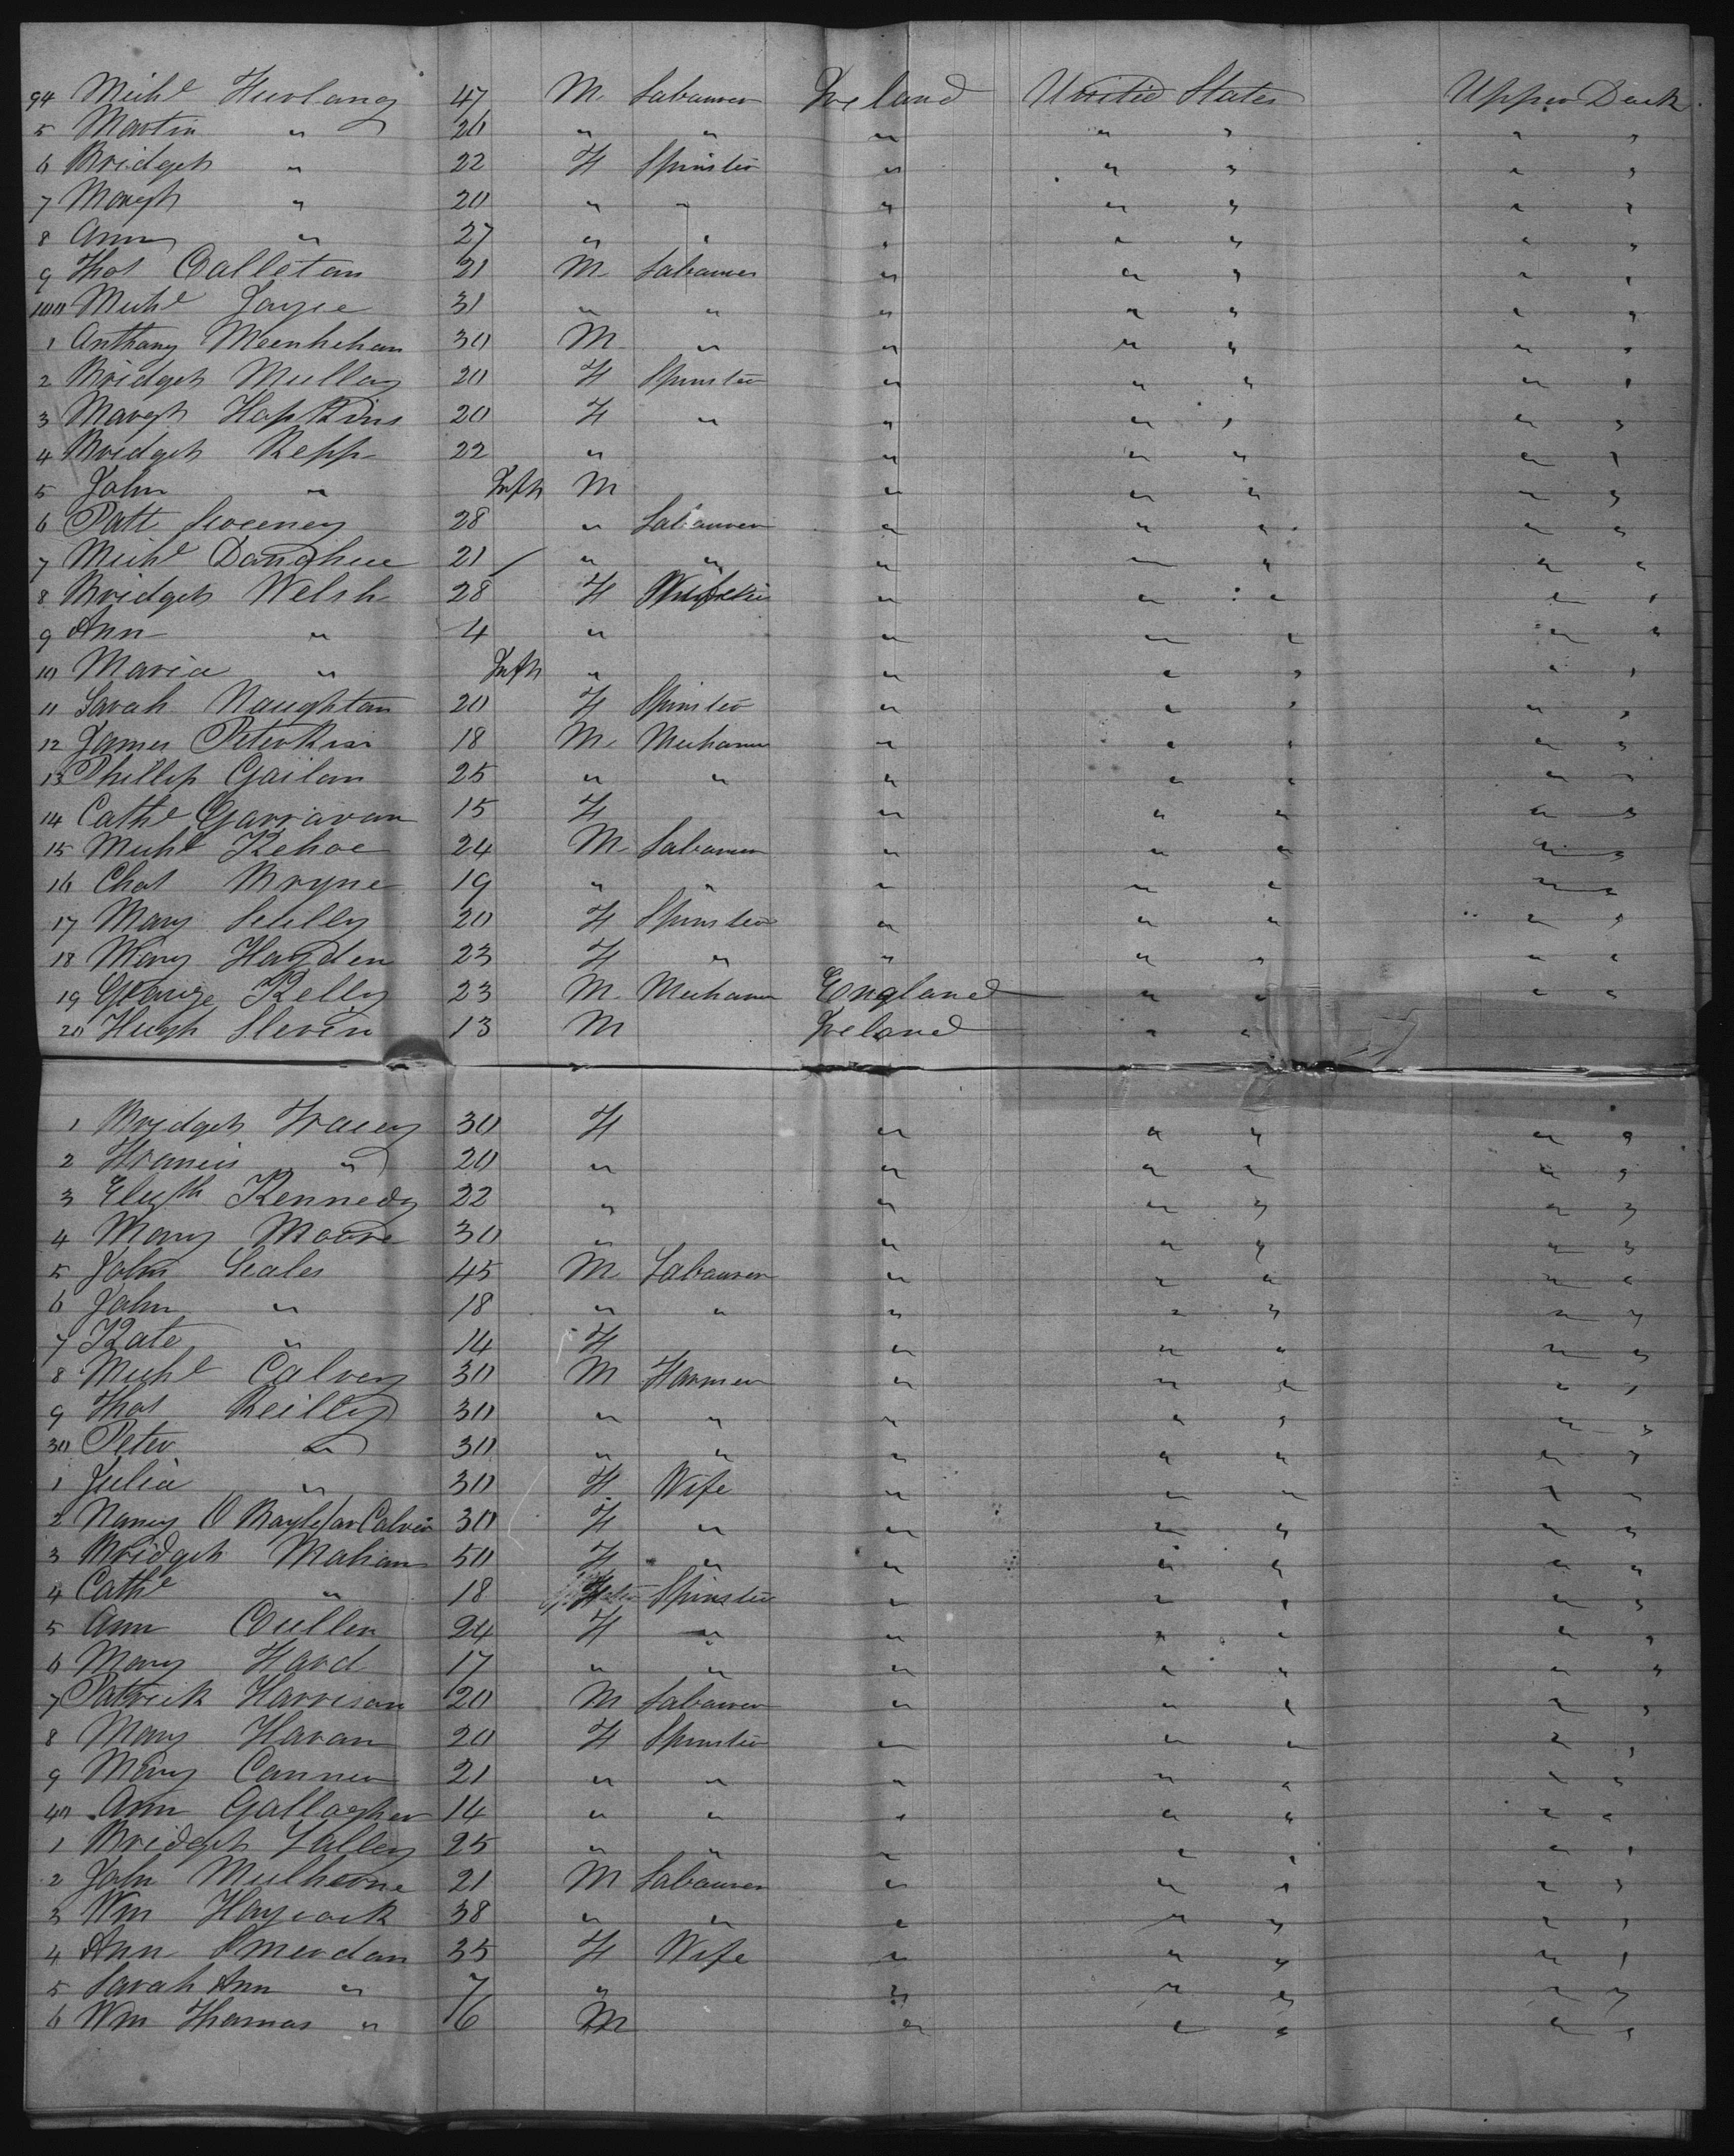 94 Michl Hurlang 47 M. Labourer Ireland United States Upper Deck.
5 Martin " 26 " " " " " " "
6 Bridget " 22 F Spinster " " " " "
7 Margt " 20 " " " " " " "
8 Ann " 27 " " " " " " "
9 Thos Colleton 21 M Labourer " " " " "
100 Michl Joyce 31 " " " " " " "
1 Anthony Meenhehan 30 M " " " " " "
2 Bridget Mulloy 20 F Spinster " " " " "
3 Margt Hopkins 20 F " " " " " "
4 Bridget Repp 22 " " " " " "
5 John " Inft M " " " " "
6 Patt Sweeney 28 " Labourer " " " " "
7 Michl Donoghue 21 " " " " " " "
8 Bridget Welsh 28 F Wife " " " " "
9 Ann " 4 " " " " " "
10 Maria " Inft " " " " " "
11 Sarah Naughton 20 F Spinster " " " " "
12 James Peterkin 18 M. Mechanic " " " " "
13 Phillip Gailan 25 " " " " " " "
14 Cathe Garravan 15 F " " " " "
15 Michl Kehoe 24 M. Labourer " " " " "
16 Chas Bryne 19 " " " " " " "
17 Mary Scully 20 F Spinster " " " " "
18 Mary Hayden 23 F " " " " " "
19 George Kelly 23 M. Mechanic England " " " "
20 Hugh Slevin 13 M Ireland " "
1 Bridget Tracey 30 F " " " " "
2 Francis " 20 " " " " " "
3 Elizth Kennedy 22 " " " " " "
4 Mary Moore 30 " " " " " "
5 John Scales 45 M Labourer " " " " "
6 John " 18 " " " " " " "
7 Kate " 14 F " " " " "
8 Michl Calvey 30 M Farmer " " " " "
9 Thos Reilly 30 " " " " " " "
30 Peter " 30 " " " " " " "
1 Julia " 30 F Wife " " " " "
2 Nancy O Boyle/or Calvey 30 F " " " " " "
3 Bridget Mahan 50 F " " " " " "
4 Cathe " 18 F Spinster " " " " "
5 Ann Cullen 24 F " " " " " "
6 Mary Hard 17 " " " " " " "
7 Patrick Harrison 20 M Labourer " " " " "
8 Mary Horan 20 F Spinster " " " " "
9 Mary Connor 21 " " " " " " "
40 Ann Gallagher 14 " " " " " " "
1 Bridget Lalley 25 " " " " " " "
2 John Mulherne 21 M Labourer " " " " "
3 Wm Haycock 38 " " " " " " "
4 Ann Smerdon 35 F Wife " " " " "
5 Sarah Ann " 7 " " " " " "
6 Wm Thomas " 6 M " " " " "